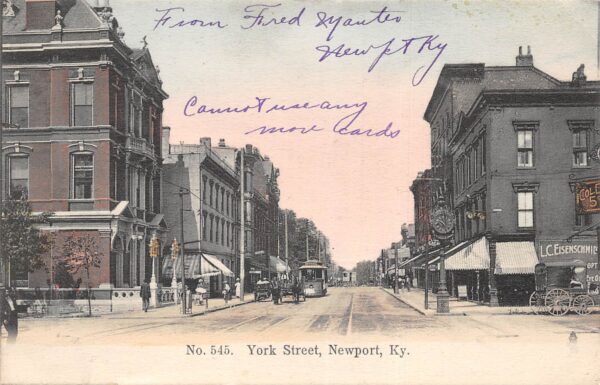 From Fred Manteo
Newpt Ky
Cannot use any
more cards
L.C. EISENSCHMI
No. 545. York Street, Newport, Ky.